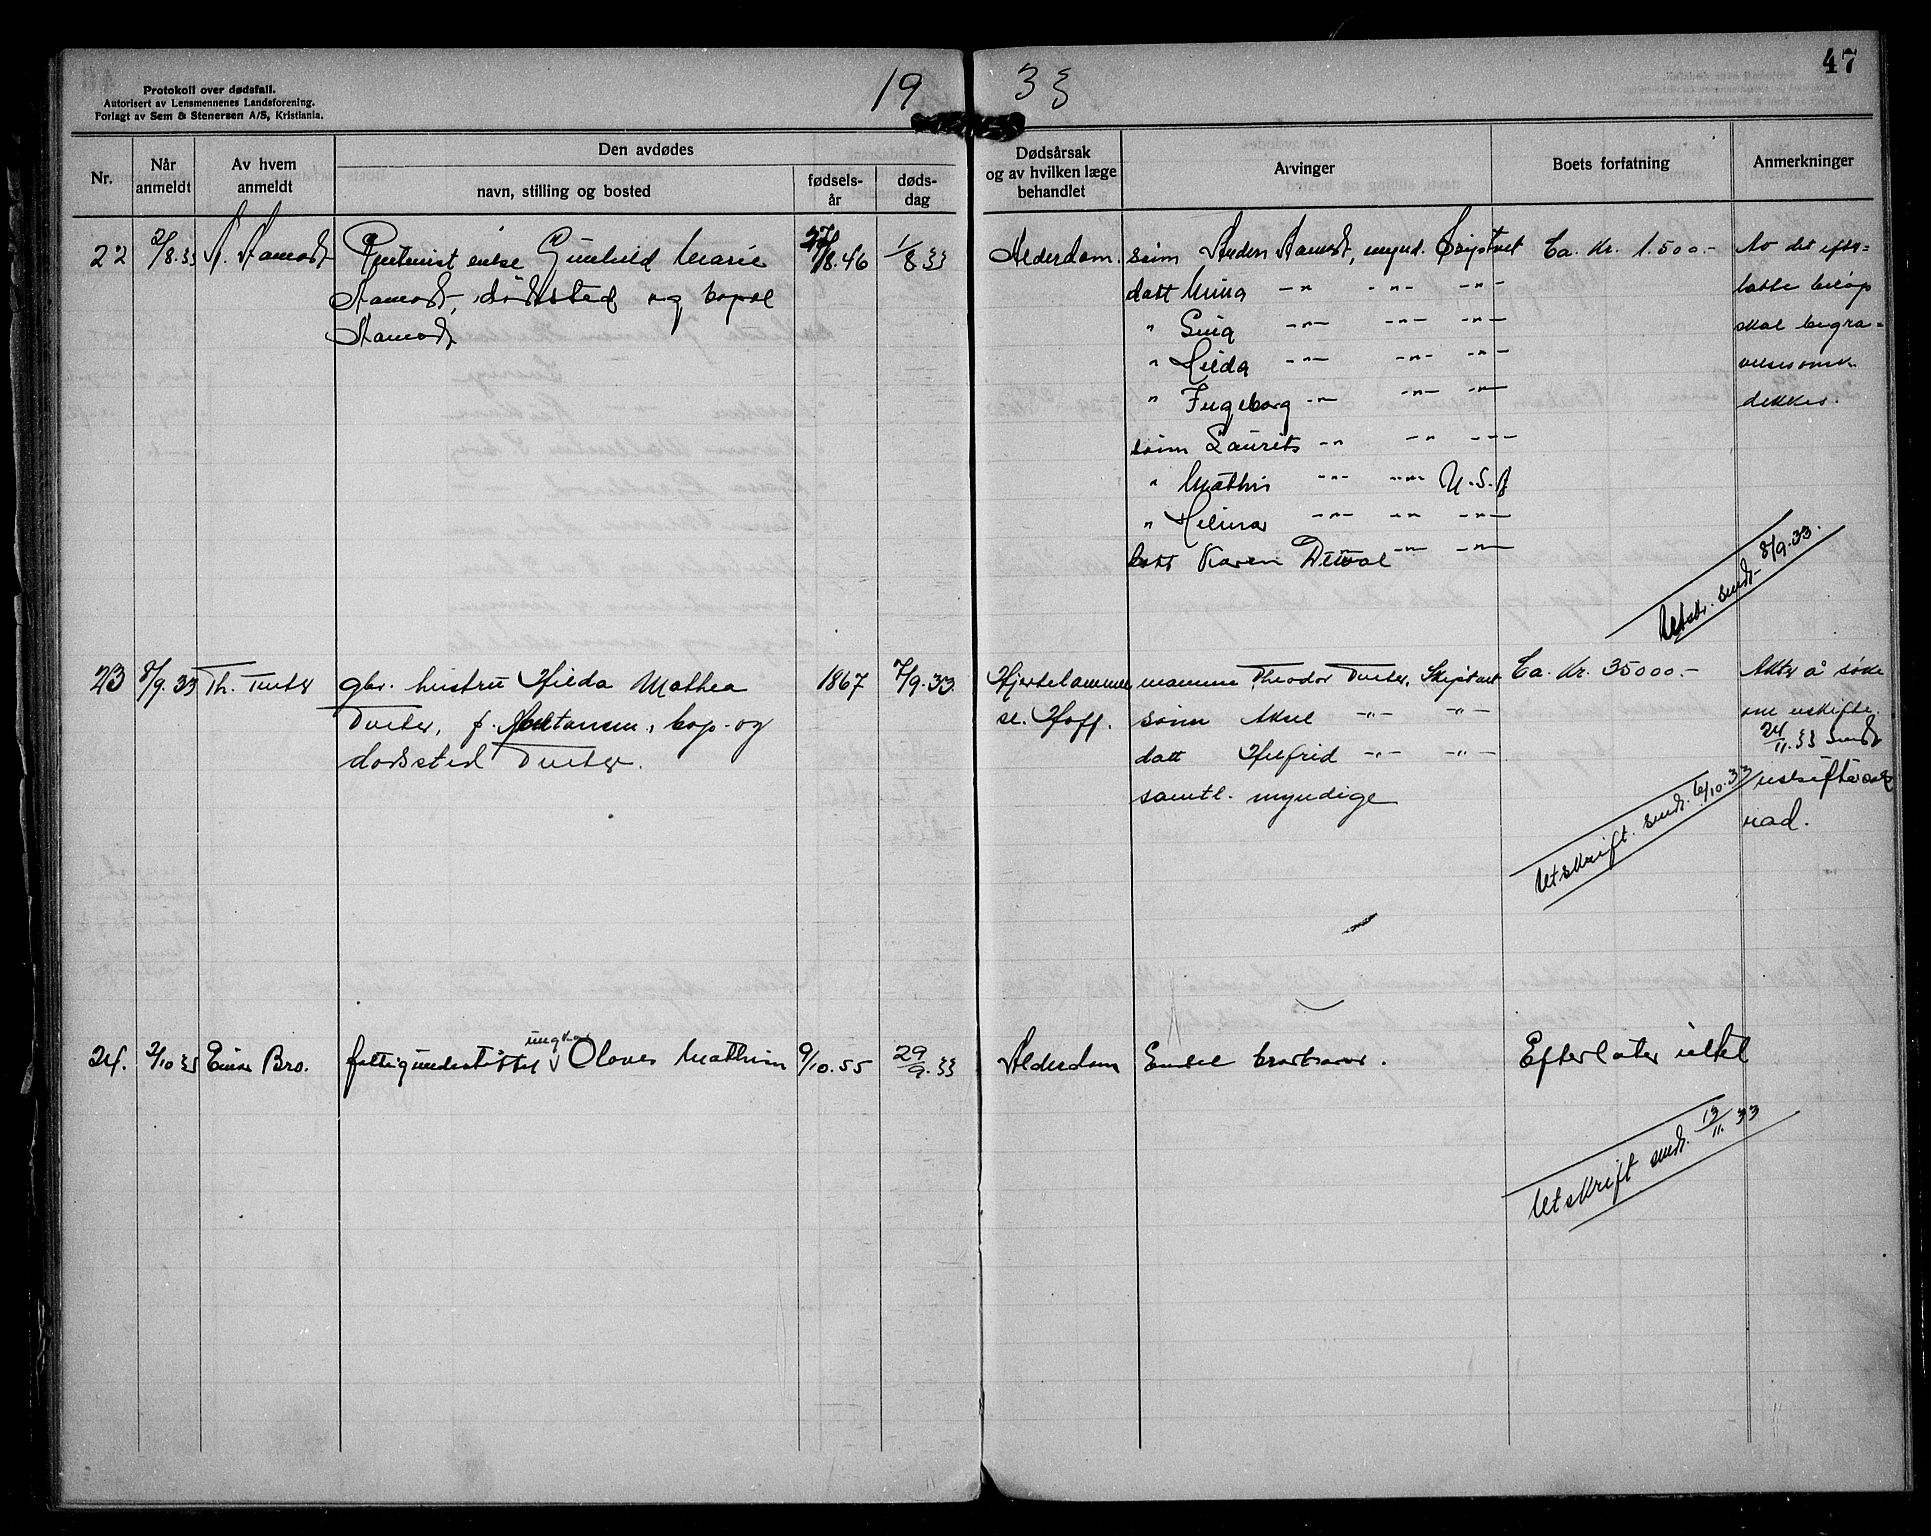 19 33
47
Protokoll over dødsfall.
Autorisert av Lensmennenes Landsforening.
Forlagt av Sem & Stenersen A/S, Kristiania.
Nr.
Når anmeldt
Av hvem anmeldt
Den avdødes
navn, stilling og bosted
fødsels-år
døds-dag
Dødsårsak og av hvilken læge behandlet
Arvinger
Boets forfatning
Anmerkninger
22 2/8.33 A. Aamodt
enke Gunhild Marie
Aamodt, dødssted og bopel
Aamodt
27/8.46 1/8 33
Alderdom.
sønn Anders Aamodt, mynd. Skiptvet
datt Mina -"- -"- -"-
" -"- -"- -"-
" Hilda -"- -"- -"-
" Ingeborg -"- -"- -"-
sønn Laurits -"- -"- -"-
" Mathis -"- -"- U.S.A
" Hilmar -"- -"- -"-
datt Karen -"- -"-
Ca. Kr. 1.500.-
Av det efter=
latte beløp
skal begra=
velsesomk.
dekkes.
Utskr. sendt 8/9.33.
23 8/9.33 Th. Tveter
gbr. hustru Hilda Mathea
Tveter, f. , bop- og
dødssted Tveter.
1867 7/9.33.
Hjertelammelse
Hoff.
Theodor Tveter, Skiptvet
sønn Aksel -"- -"-
datt Hilfrid -"- -"-
samtl. myndige
Ca. Kr. 35000.-
Akter å søke
om uskifte.
24/11.33 sendt
uskiftesøk
nad.
Utskrift sendt. 6/10.33
24. 2/10 33 Einar Bro.
fattigunderstøttet ungkar Olaves Mathisen
9/10.55 29/9.33
Alderdom
Endel brorbarn.
Efterlater intet
Utskrift sendt. 13/11.33